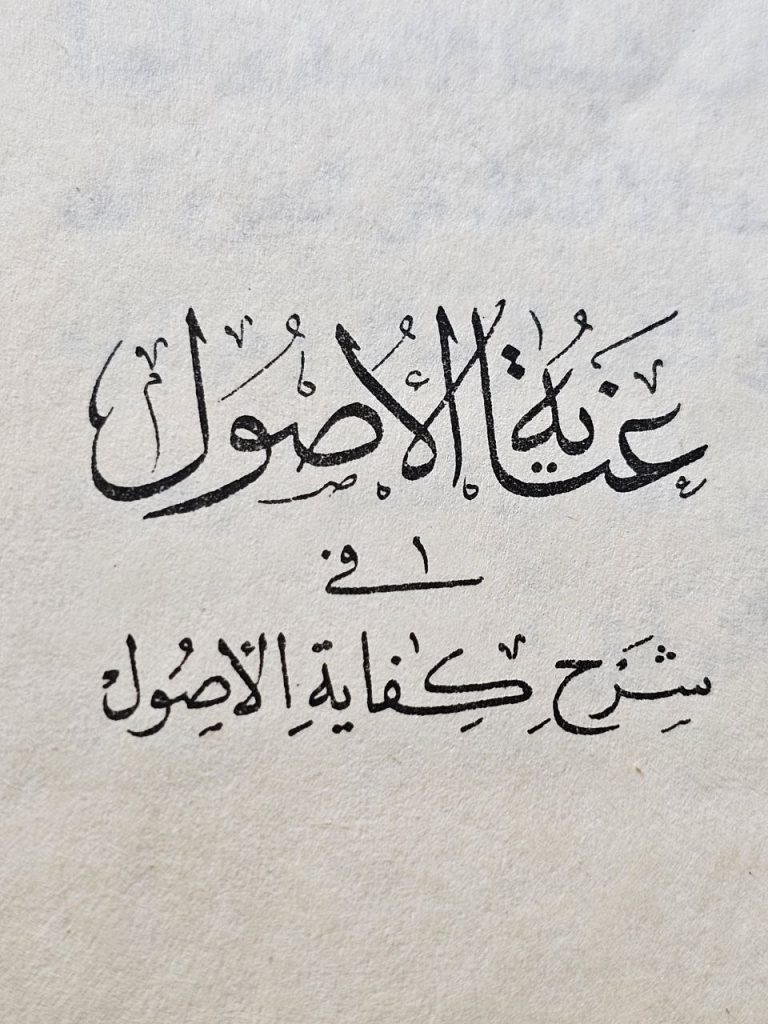 عناية الأُصُول
في
شرح كفاية الأصول